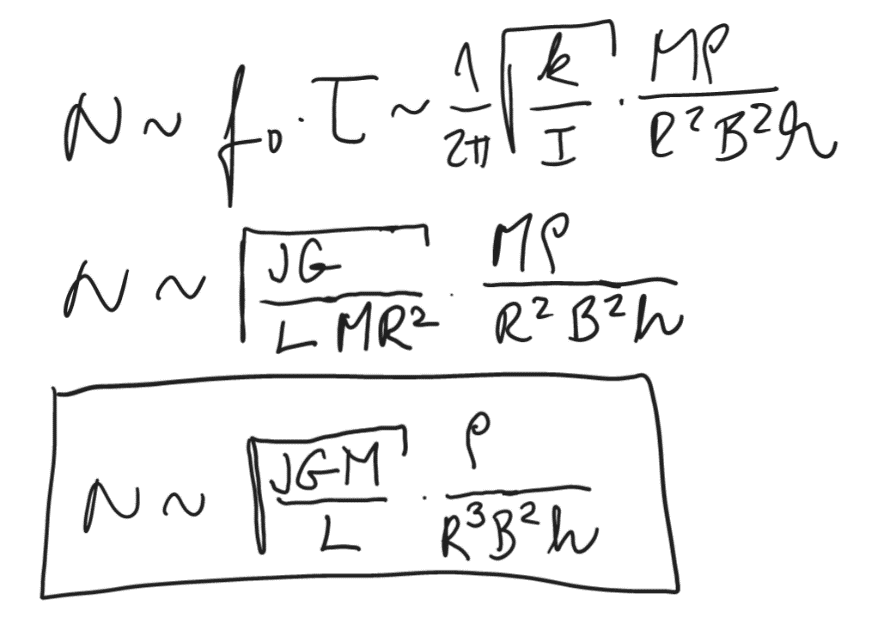 N ~ f₀ · τ ~ 1/2π √(k/I) · Mρ/(R²B²h)
N ~ √(JG/(LMR²)) · Mρ/(R²B²h)
N ~ √(JGM/L) · ρ/(R³B²h)